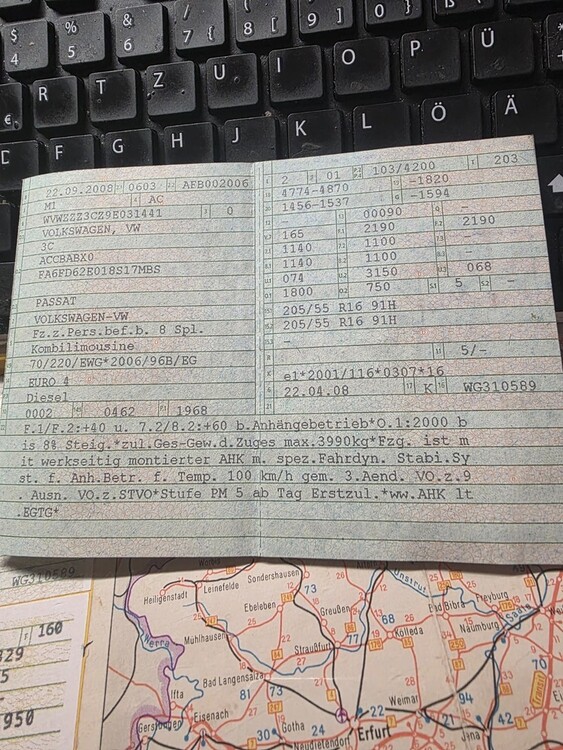 $ 4
% 5
& 6
/ 7 {
( 8 [
) 9 ]
= 0 }
R T Z U I O P Ü
€
D F G H J K L Ö Ä
22.09.2008 0603 AEB002006
M1 AC
WVWZZZ3CZ9E031441 0
VOLKSWAGEN, VW
3C
ACCBABX0
FA6FD62E018S17MBS
PASSAT
VOLKSWAGEN-VW
Fz.z.Pers.bef.b. 8 Spl.
Kombilimousine
70/220/EWG*2006/96B/EG
EURO 4
Diesel
0002 0462 1968
2 01 103/4200 203
4774-4870 -1820
1456-1537 -1594
- 00090 -
165 2190 2190
1140 1100 -
1140 1100 -
074 3150 068
1800 750 5 -
205/55 R16 91H
205/55 R16 91H
-
5/-
e1*2001/116*0307*16
22.04.08 K WG310589
F.1/F.2:+40 u. 7.2/8.2:+60 b.Anhängebetrieb*O.1:2000 b
is 8% Steig.*zul.Ges-Gew.d.Zuges max.3990kg*Fzg. ist m
it werkseitig montierter AHK m. spez.Fahrdyn. Stabi.Sy
st. f. Anh.Betr. f. Temp. 100 km/h gem. 3.Aend. VO.z.9
. Ausn. VO.z.STVO*Stufe PM 5 ab Tag Erstzul.*ww.AHK lt
.EGTG*
WG310589
160
329
5
950
Heiligenstadt
Leinefelde
Sondershausen
Ebeleben
73
Greußen
Unstrut
Bad Bibra
Freyburg
Naumburg
Saale
Werra
Mühlhausen
Straußfurt
77
68
Kölleda
Bad Langensalza
81
73
Ifta
Gerstungen
Eisenach
30
Gotha
24
Neudietendorf
22
Erfurt
Weimar
21
94
Jena
42
70
Transit